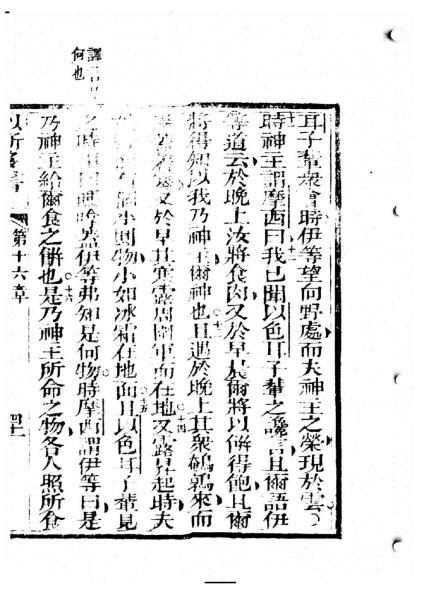 耳子輩衆會時伊等望向野處而夫神主之榮現於雲
時神主謂摩西曰我已聞以色耳子輩之讒言且爾語伊
等道云於晚上汝將食肉又於早晨爾將以餅得飽且爾
將得知以我乃神主爾神也且遇於晚上其衆鵪鶉來而
又於早其寒露周圍軍而在地又露昇起時夫
小圓物小如冰霜在地面且以色耳子輩見
之時伊等弗知是何物時摩西謂伊等曰是
乃神主給爾食之餅也是乃神主所命之物各人照所食
第十六章
譯言
何也